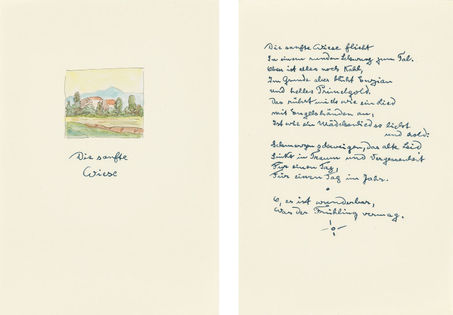 Die sanfte
Wiese
Die sanfte Wiese flieht
In einem runden Schwung zum Tal.
Oben ist alles noch kahl,
Im Grunde aber blüht Enzian
und helles Primelgold.
Das rührt mich wie ein Lied
mit Engelshänden an,
Ist wie ein Mädchenlied so liebst
und hold:
Schmerzen schweigen, das alte Leid
Sinkt in Traum und Vergessenheit
Für einen Tag,
Für einen Tag im Jahr.
O, es ist wunderbar,
Was der Frühling vermag.